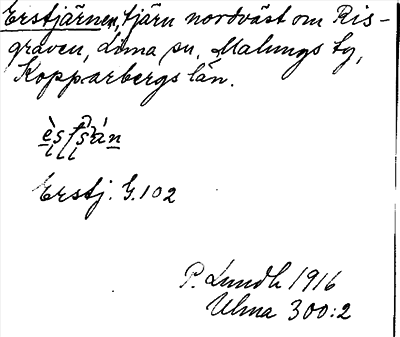 Erstjärnen, tjärn nordväst om Ris-
graven, Lima sn. Malungs tg,
Kopparbergs län.
Erstj. G.102
P. Lundh 1916
Ulma 300:2